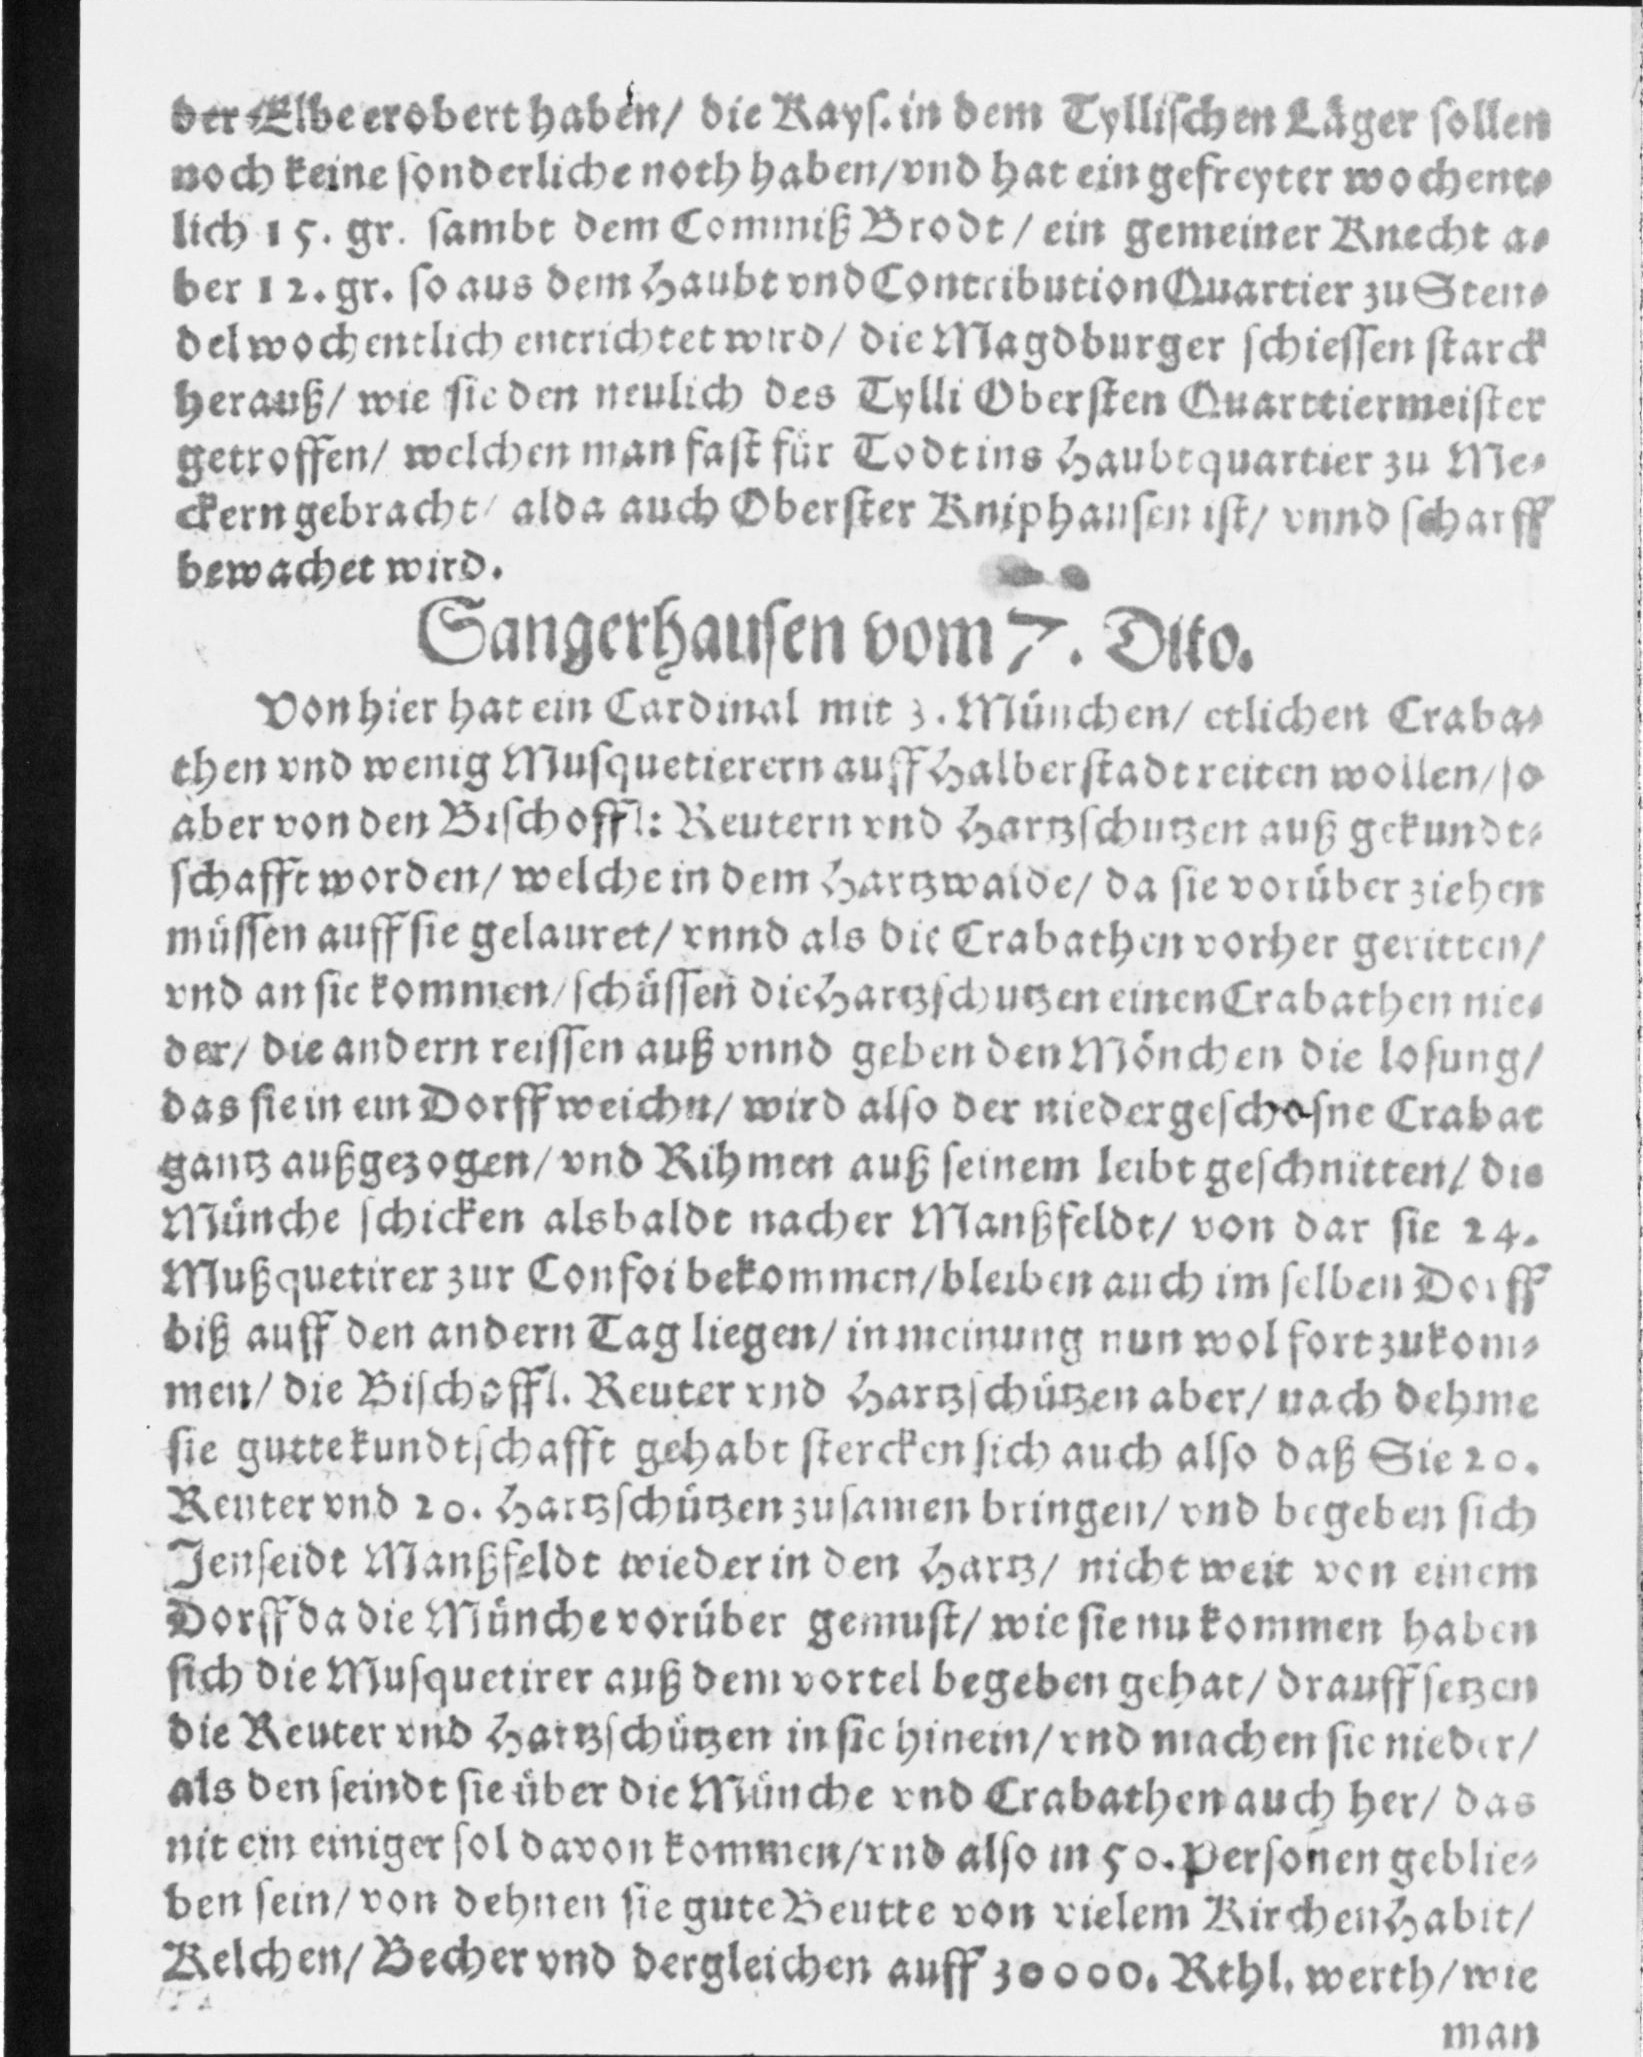 der Elbe erobert haben/ die Kays. in dem Tyllischen Läger sollen
noch keine sonderliche noth haben/ vnd hat ein gefreyter wochent-
lich 15. gr. sambt dem Commiß Brodt/ ein gemeiner Knecht a-
ber 12. gr. so aus dem Haubt vnd Contribution Quartier zu Sten-
del wochentlich entrichtet wird/ die Magdburger schiessen starck
herauß/ wie sie den neulich des Tylli Obersten Quarttiermeister
getroffen/ welchen man fast für Todt ins Haubtquartier zu Me-
ckern gebracht/ alda auch Oberster Kniphausen ist/ vnnd scharff
bewachet wird.
Sangerhausen vom 7. Dito.
Von hier hat ein Cardinal mit 3. München/ etlichen Craba-
then vnd wenig Musquetierern auff Halberstadt reiten wollen/ so
aber von den Bischoffl: Reutern vnd Hartzschutzen auß gekundt-
schafft worden/ welche in dem Hartzwalde/ da sie vorüber ziehen
müssen auff sie gelauret/ vnnd als die Crabathen vorher geritten/
vnd an sie kommen/ schüssen die Hartzschutzen einen Crabathen nie-
der/ die andern reissen auß vnnd geben den Mönchen die losung/
das sie in ein Dorff weichn/ wird also der niedergeschosne Crabat
gantz außgezogen/ vnd Rihmen auß seinem leibt geschnitten/ die
Münche schicken alsbaldt nacher Manßfeldt/ von dar sie 24.
Mußquetirer zur Confoi bekommen/ bleiben auch im selben Dorff
biß auff den andern Tag liegen/ in meinung nun wol fort zukom-
men/ die Bischoffl. Reuter vnd Hartzschützen aber/ nach dehme
sie gutte kundtschafft gehabt stercken sich auch also daß Sie 20.
Reuter vnd 20. Hartzschützen zusamen bringen/ vnd begeben sich
Jenseidt Manßfeldt wieder in den Hartz/ nicht weit von einem
Dorff da die Münche vorüber gemust/ wie sie nu kommen haben
sich die Musquetirer auß dem vortel begeben gehat/ drauff setzen
die Reuter vnd Hartzschützen in sie hinein/ vnd machen sie nieder/
als den seindt sie über die Münche vnd Crabathen auch her/ das
nit ein einiger sol davon kommen/ vnd also in 50. Personen geblie-
ben sein/ von dehnen sie gute Beutte von vielem Kirchen Habit/
Kelchen/ Becher vnd dergleichen auff 30000. Rthl. werth/ wie
man